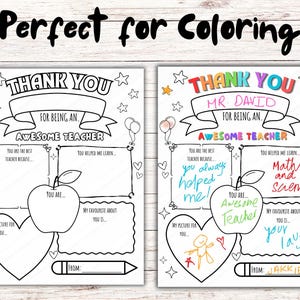 Perfect for Coloring
THANK YOU
FOR BEING AN
AWESOME TEACHER
YOU ARE THE BEST
TEACHER BECAUSE...
YOU HELPED ME LEARN...
YOU ARE...
MY FAVOURITE ABOUT
YOU IS...
PICTURE FOR
YOU
FROM:
THANK YOU
MR DAVID
FOR BEING AN
AWESOME TEACHER
YOU ARE THE BEST
TEACHER BECAUSE...
you always
helped
me!
YOU HELPED ME LEARN...
Math
and
YOU ARE...
Awesome
Teacher
MY FAVOURITE ABOUT
YOU IS...
your
MY PICTURE FOR
YOU
FROM: